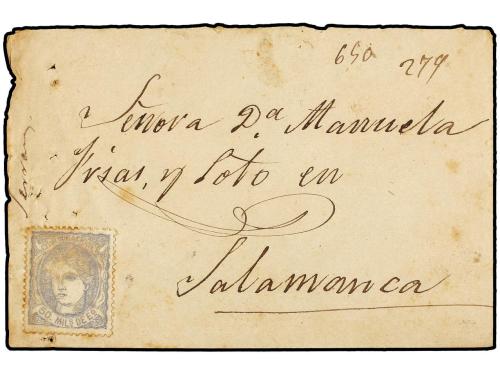 650 279
Señora Dª Manuela
Frias, y Soto en
Salamanca
50 MILS DE Eº